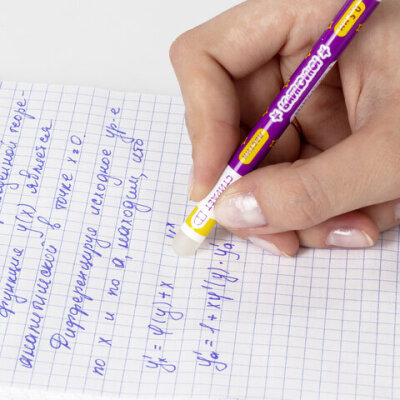 теоре-
функция y(x) является
аналитической в точке x=0.
Дифференцируя исходное ур-е
по x и по a, находим, что
y'ₓ = φ(y)+x
y'ₐ = 1+xφ'(y)·y'ₐ